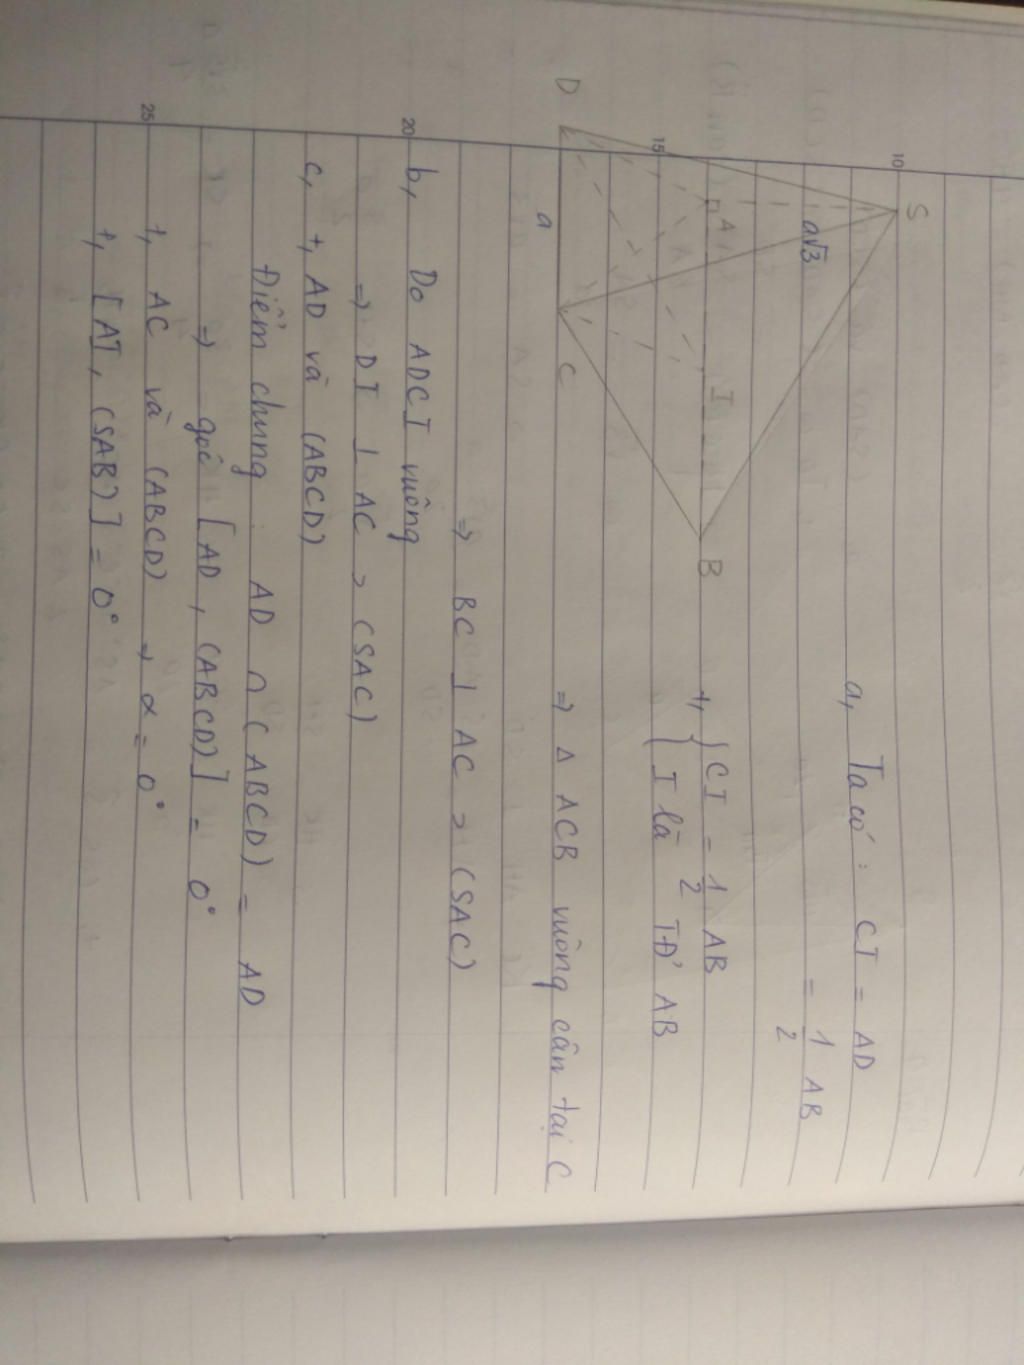 10
S
a√3
A
I
B
15
D
a
C
a, Ta có : CI = AD
= 1/2 AB
+, { CI = 1/2 AB
I là TĐ' AB
⇒ Δ ACB vuông cân tại C
⇒ BC ⊥ AC > (SAC)
20
b, Do ADCI vuông
⇒ DI ⊥ AC > (SAC)
c, +, AD và (ABCD)
Điểm chung : AD ∩ (ABCD) = AD
⇒ góc [AD, (ABCD)] = 0°
25
+, AC và (ABCD) ⇒ α = 0°
+, [AI, (SAB)] = 0°